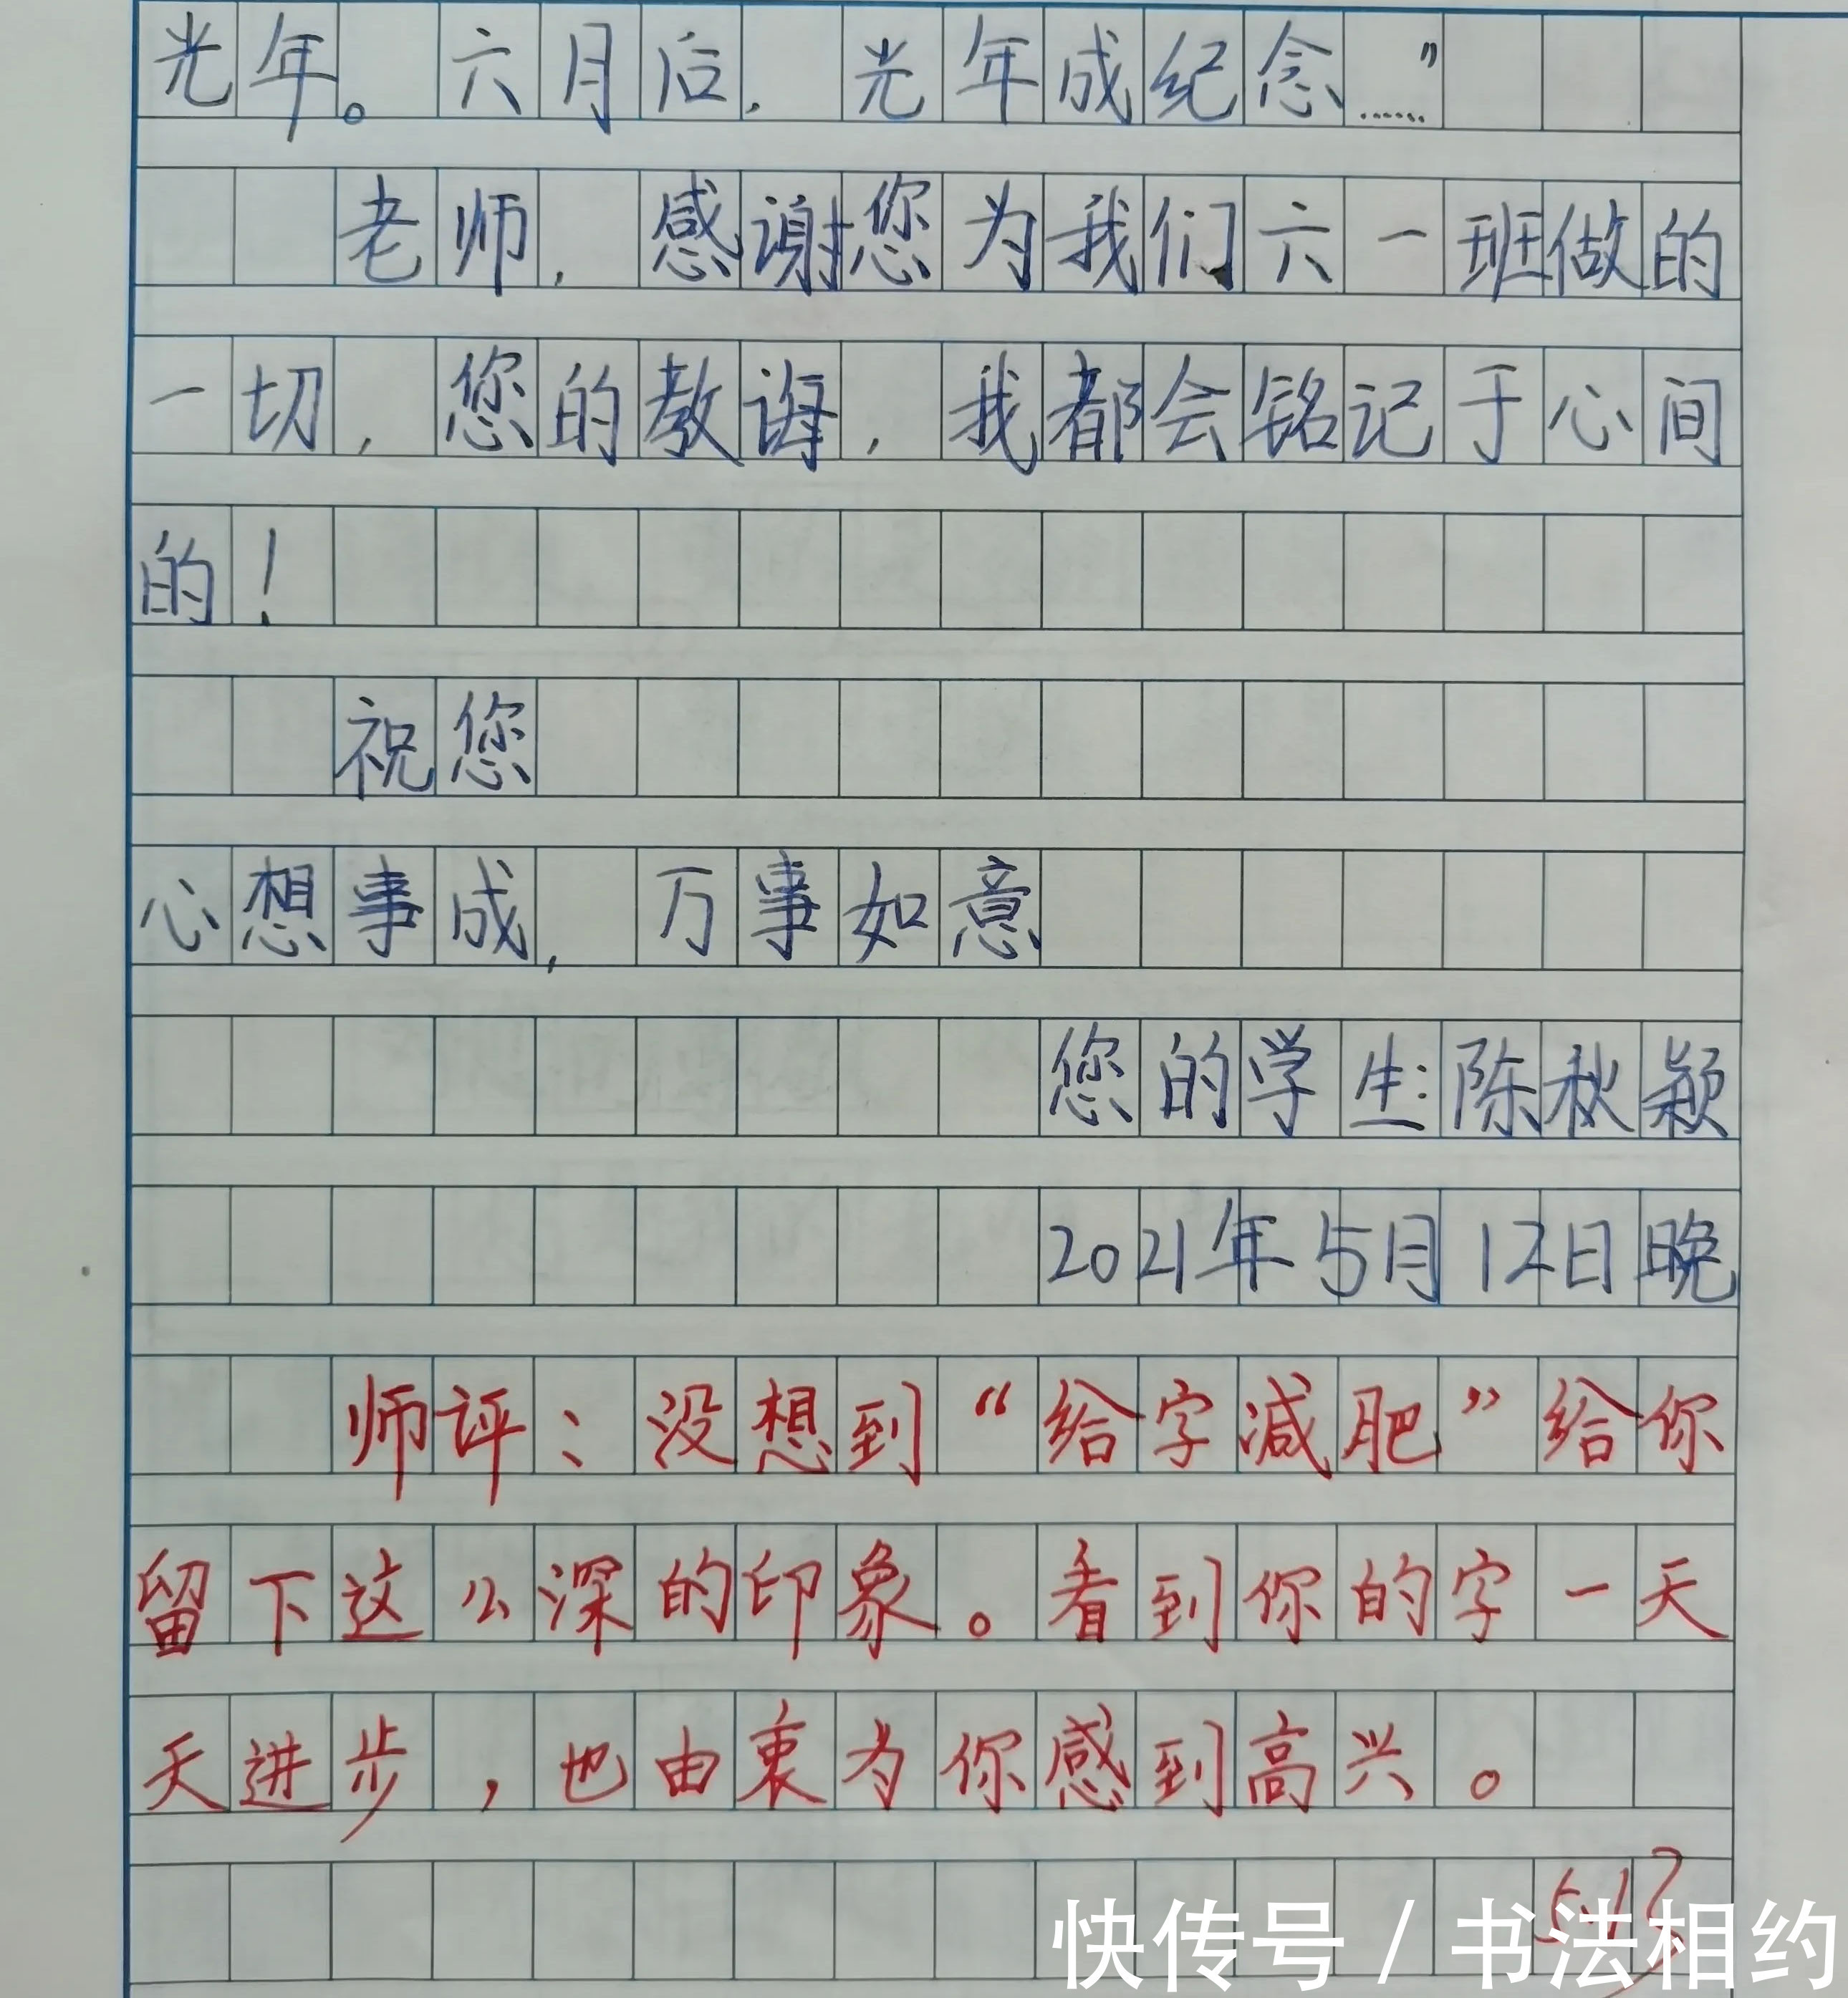 光年。六月后，光年成纪念……”
老师，感谢您为我们六一班做的
一切，您的教诲，我都会铭记于心间
的！
祝您
心想事成，万事如意
您的学生：陈秋颖
2021年5月12日晚
师评：没想到“给字减肥”给你
留下这么深的印象。看到你的字一天
天进步，也由衷为你感到高兴。
5.13
快传号/书法相约